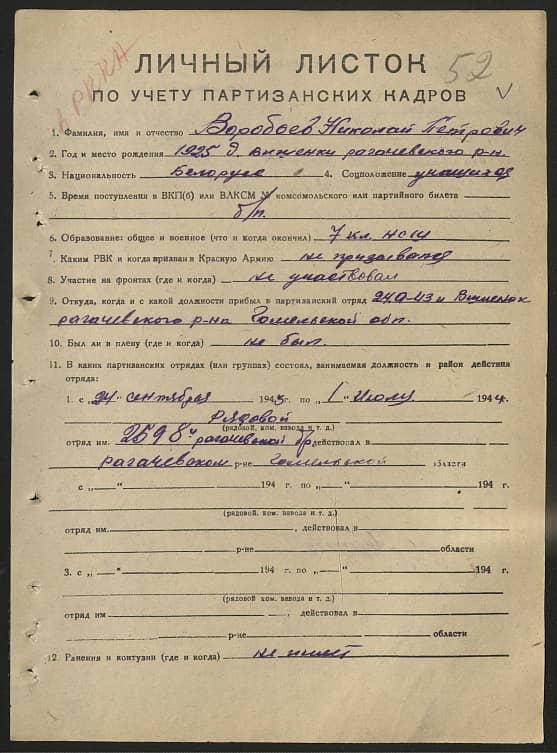 52
ЛИЧНЫЙ ЛИСТОК
ПО УЧЕТУ ПАРТИЗАНСКИХ КАДРОВ
1. Фамилия, имя и отчество Воробьев Николай Петрович
2. Год и место рождения 1925 д. рагачевского р-н.
3. Национальность Белорус 4. Соцположение учащийся
5. Время поступления в ВКП(б) или ВЛКСМ № комсомольского или партийного билета
б/п.
6. Образование: общее и военное (что и когда окончил) 7 кл. нсш
7. Каким РВК и когда призван в Красную Армию не призывался
8. Участие на фронтах (где и когда) не участвовал
9. Откуда, когда и с какой должности прибыл в партизанский отряд
рагачевского р-на Гомельской обл.
10. Был ли в плену (где и когда) не был.
11. В каких партизанских отрядах (или группах) состоял, занимаемая должность и район действия
отряда:
1. с „24" сентября 1943 г. по „1" Июля 1944 г.
Рядовой
(рядовой, ком. взвода и т. д.)
отряд им. 259 8й рагачевской бр действовал в
рагачевском р-не Гомельской области
с „ " 194 г. по „ " 194 г.
(рядовой, ком. взвода и т. д.)
отряд им. , действовал в
р-не области
3. с „ " 194 г. по „ " 194 г.
(рядовой ком. взвода и т. д.)
отряд им , действовал в
р-не области
12. Ранения и контузии (где и когда) не имеет